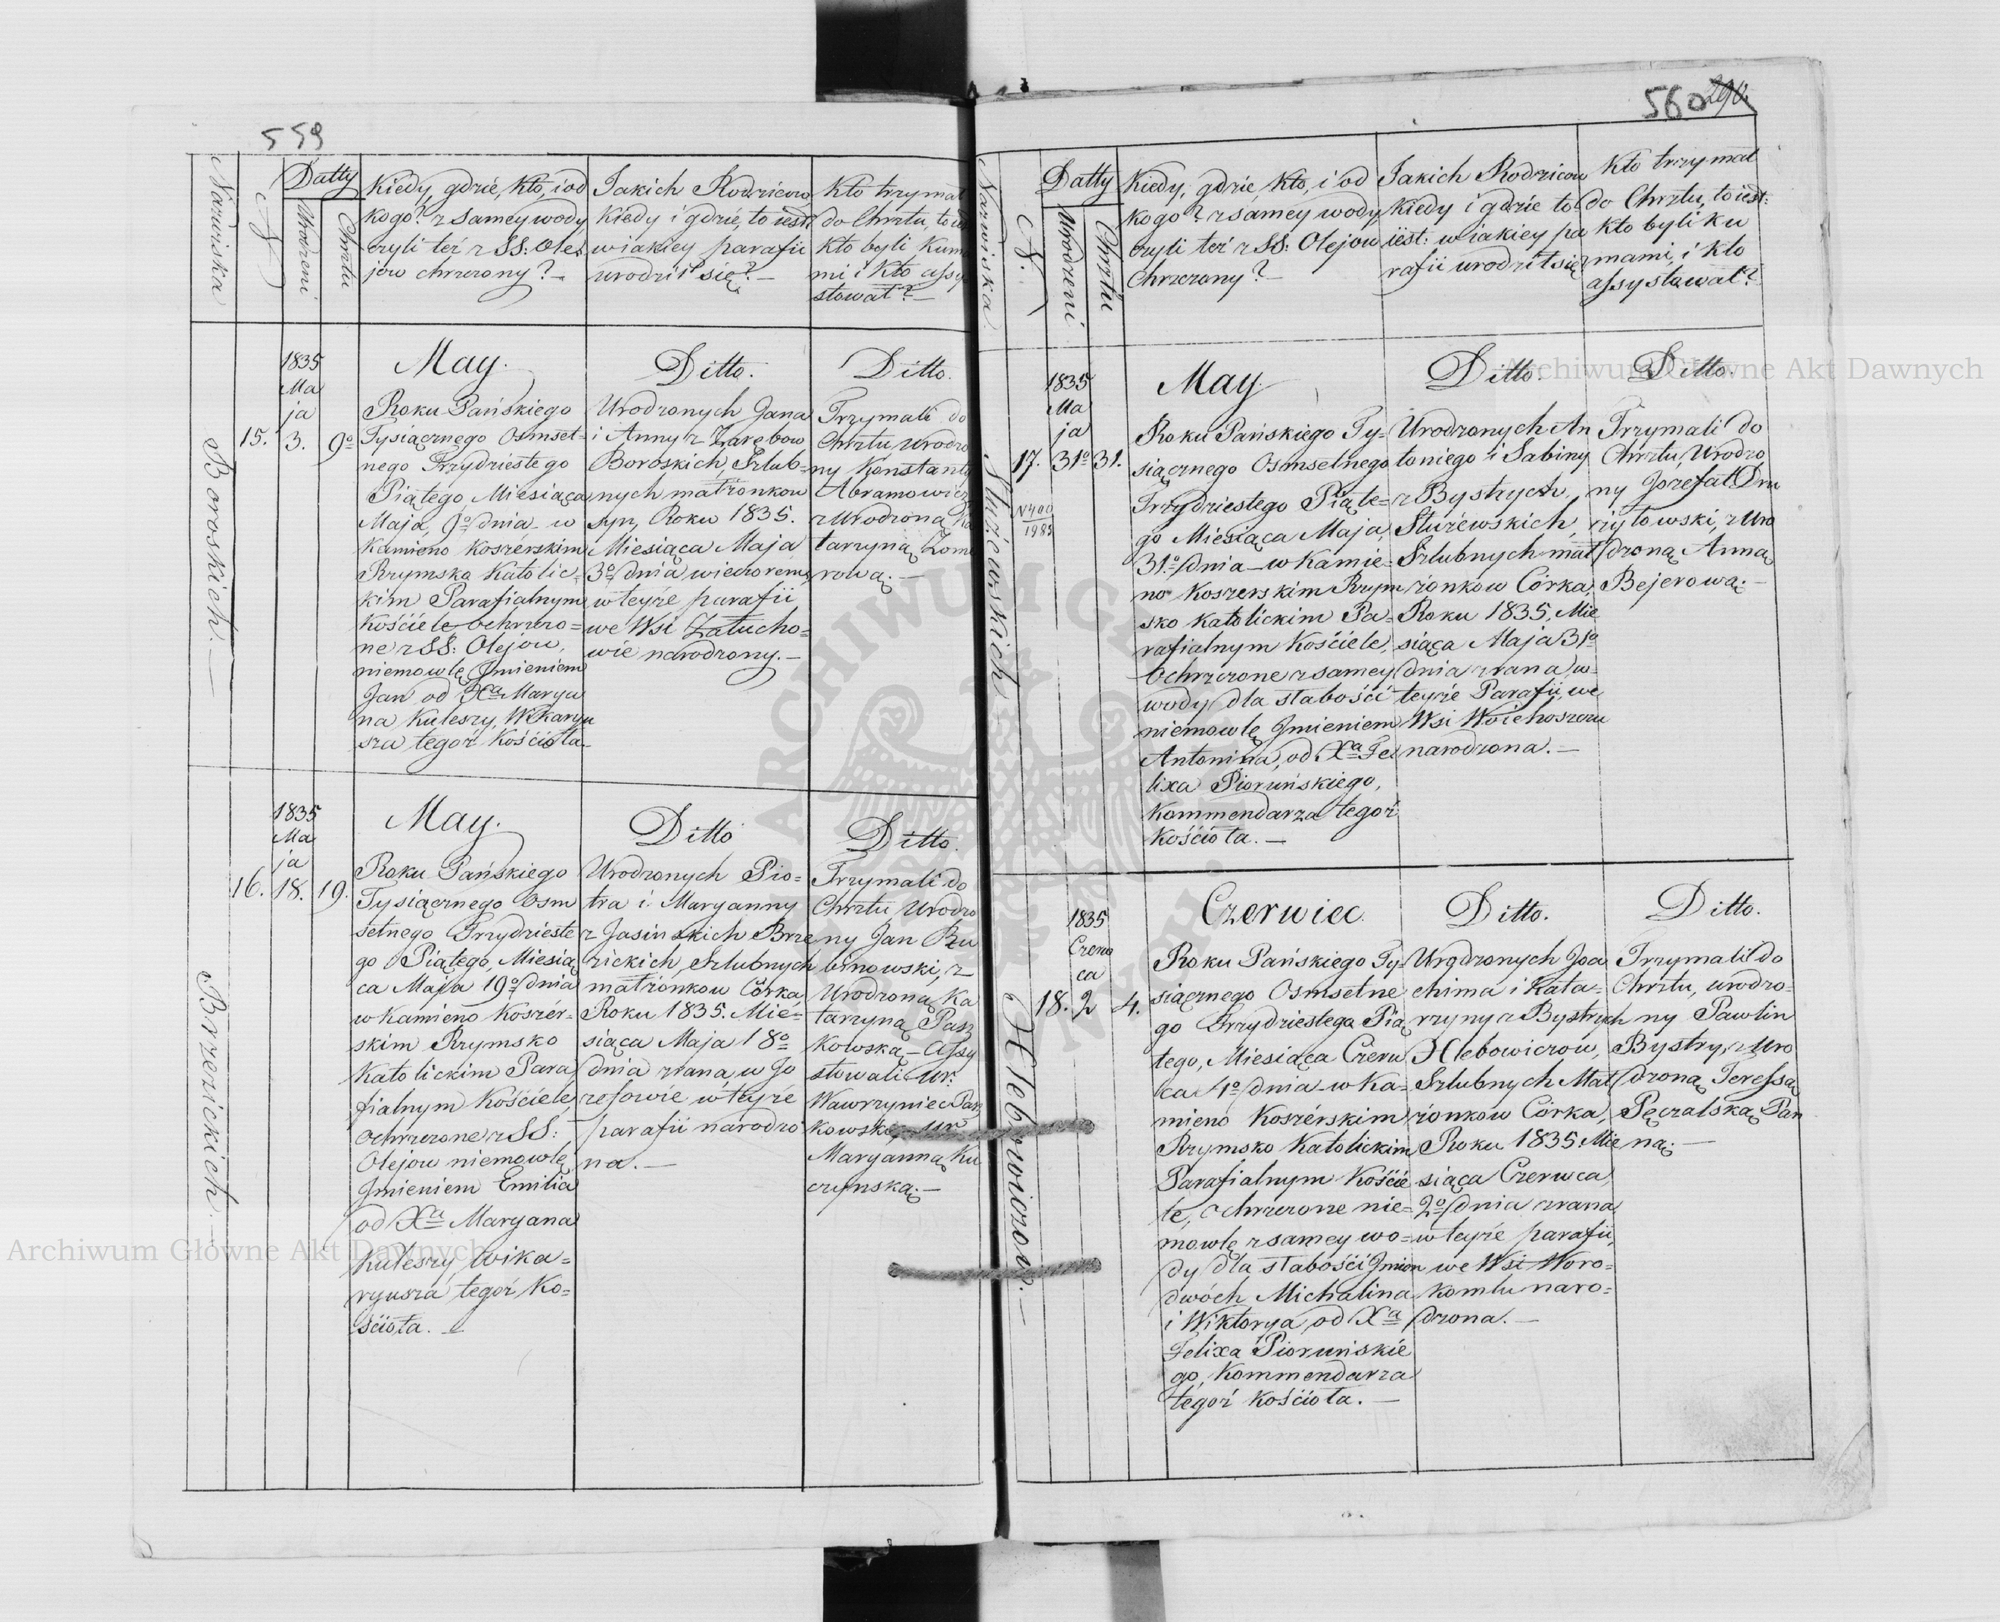 559
Nazwiska
N.
Datty
Urodzeni
Chrztu
Kiedy, gdzie, kto, i od
kogo? z samey wody,
czyli też z SS: Ole:
jow chrzczony? —
Jakich Rodziców
kiedy i gdzie, to iest
w iakiey parafii
urodził się? —
Kto trzymał
do Chrztu, to
kto byli Kum
mi i kto assy
stował? —
Boroskich. —
15.
1835
Ma
ja
3.
9º
May.
Roku Pańskiego
Tysiącznego Osmset-
nego Trzydziestego
Piątego, Miesiąca
Maja, 9º dnia w
Kamieno Koszérskim
Rzymsko Katolic-
kim Parafialnym
Kościele ochrzczo=
ne z SS: Olejow,
niemowlę Jmieniem
Jan od Xª Marya
na Kuleszy, Wikaryu
sza tegoż Kościoła. —
Ditto.
Urodzonych Jana
i Anny z Zarębow
Boroskich, Szlub=
nych małżonkow
syn, Roku 1835.
Miesiąca Maja
3º dnia wieczorem,
w teyże parafii
we Wsi Załucho=
wie narodzony. —
Ditto.
Trzymali do
Chrztu, Urodzo
ny Konstanty
Abramowicz
z Urodzoną Ka
tarzyną Zom
rową. —
Brzezickich. —
16.
1835
Ma
ja
18.
19.
May.
Roku Pańskiego
Tysiącznego Osm
setnego Trzydzieste
go Piątego, Miesią
ca Maja 19º dnia
w Kamieno Koszér-
skim Rzymsko
Katolickim Para
fialnym Kościele,
ochrzczone z SS:
Olejow niemowlę,
Jmieniem Emilia
od Xª Maryana
Kuleszy Wika=
ryusza tegoż Ko=
ścioła. —
Ditto
Urodzonych Pio=
tra i Maryanny
z Jasinskich Brze
zickich, Szlubnych
małżonkow Córka,
Roku 1835. Mie=
siąca Maja 18º
dnia zrana, w Jo
zefówie w teyże
parafii narodzo
na. —
Ditto.
Trzymali do
Chrztu, Urodzo
ny Jan Ru
binowski, z
Urodzoną Ka
tarzyną Pasz
kowską — Assy
stowali Ur:
Wawrzyniec Pasz
kowski z Ur:
Maryanną Ku
czynską. —
560
290.
Nazwiska
N.
Datty
Urodzeni
Chrztu
Kiedy, gdzie kto, i od
kogo? z samey wody,
czyli też z SS: Olejow
Chrzczony? —
Jakich Rodzicow
kiedy i gdzie to
iest: w iakiey pa
rafii urodził się
Kto trzymał
do Chrztu, to iest:
kto byli ku
mami, i kto
assystował?
Służewskich
17.
N400
1985
1835
Ma
ja
31º
31.
May.
Roku Pańskiego Ty-
siącznego Osmsetnego
Trzydziestego Piąte=
go Miesiąca Maja,
31º dnia w Kamie=
no Koszerskim Rzym
sko katolickim Pa=
rafialnym Kościele,
Ochrzczone z samey
wody dla słabości
niemowlę Jmieniem
Antonina, od Xª Fe
lixa Pioruńskiego,
Kommendarza tegoż
Kościoła. —
Ditto.
Urodzonych An
toniego i Sabiny
z Bystrych
Służewskich,
Szlubnych mał
żonkow Córka,
Roku 1835, Mie
siąca Maja 31º
dnia zrana, w
teyże Parafii, we
Wsi Woiehoszczu
narodzona. —
Ditto.
Trzymali do
Chrztu, Urodzo
ny Jozefat Dru
żyłowski, z Uro
dzoną Anną
Bejerową. —
Chlebowiczow. —
18.
1835
Czerw
ca
2
4.
Czerwiec.
Roku Pańskiego Ty-
siącznego Osmsetne
go Trzydziestego Pią
tego, Miesiąca Czerw
ca 4º dnia w Ka=
mieno Koszérskim
Rzymsko Katolickim
Parafialnym Koście
le, ochrzczone nie=
mowlę z samey wo=
dy dla słabości Jmion
dwóch Michalina
i Wiktorya, od Xª
Felixa Pioruńskie
go, Kommendarza
tegoż Kościoła. —
Ditto.
Urodzonych Joa
chima i Kata=
rzyny z Bystrych
Chlebowiczow,
Szlubnych Mał
żonkow Córka,
Roku 1835 Mie
siąca Czerwca,
2º dnia zrana
w teyże parafii,
we Wsi Woro=
komlu naro=
dzona. —
Ditto.
Trzymali do
Chrztu, urodzo=
ny Pawlin
Bystry, z Uro
dzoną Teressą
Pęczalską Pan
ną. —
Archiwum Główne Akt Dawnych
Archiwum Główne Akt Dawnych